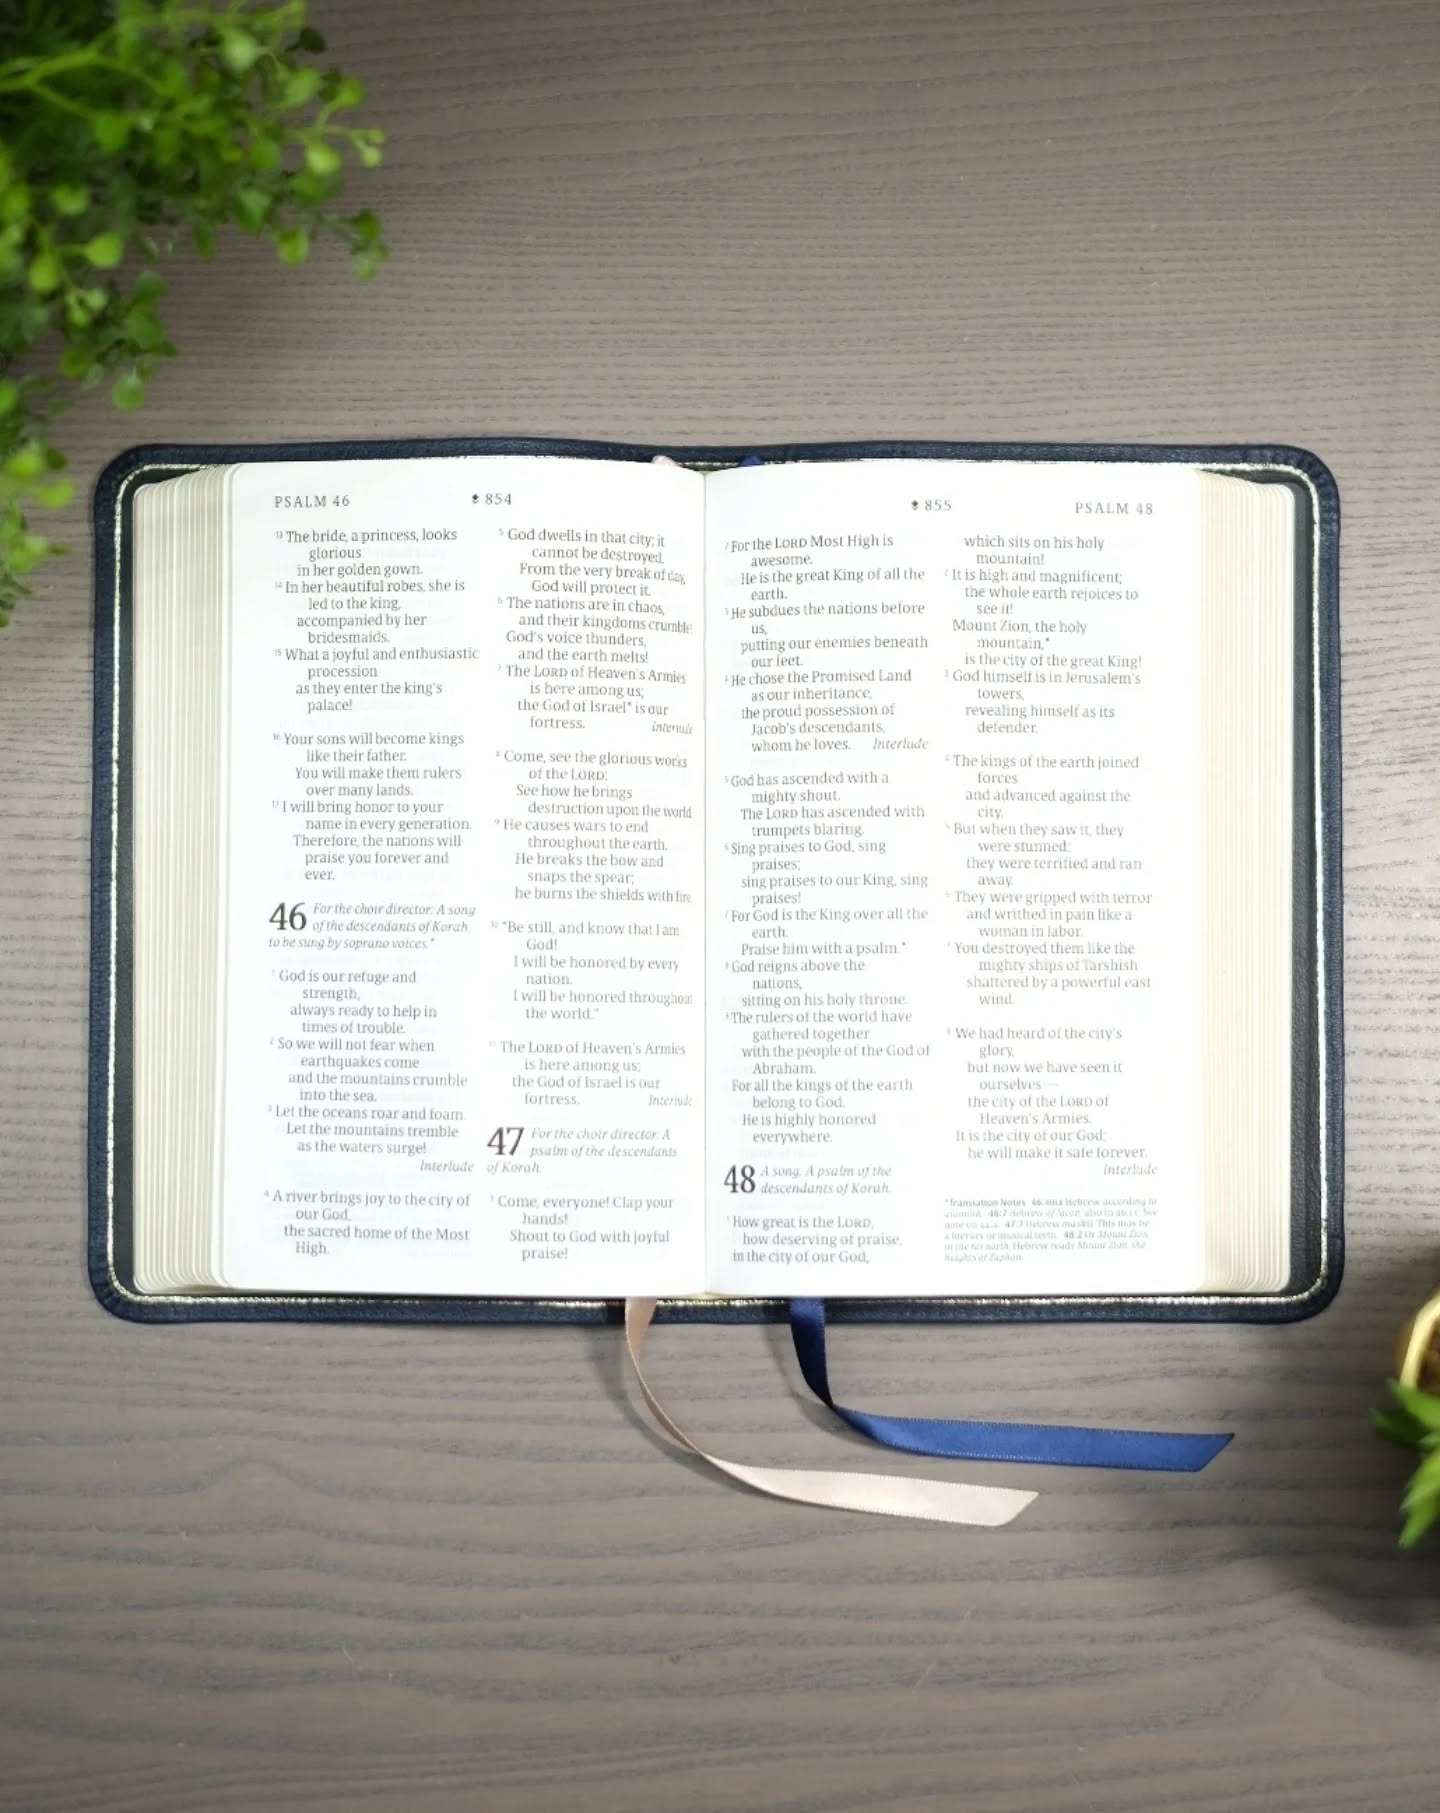 PSALM 46
854
13 The bride, a princess, looks
glorious
in her golden gown.
14 In her beautiful robes, she is
led to the king,
accompanied by her
bridesmaids.
15 What a joyful and enthusiastic
procession
as they enter the king's
palace!
16 Your sons will become kings
like their father.
You will make them rulers
over many lands.
17 I will bring honor to your
name in every generation.
Therefore, the nations will
praise you forever and
ever.
46 For the choir director: A song
of the descendants of Korah,
to be sung by soprano voices.*
1 God is our refuge and
strength,
always ready to help in
times of trouble.
2 So we will not fear when
earthquakes come
and the mountains crumble
into the sea.
3 Let the oceans roar and foam.
Let the mountains tremble
as the waters surge!
Interlude
4 A river brings joy to the city of
our God,
the sacred home of the Most
High.
5 God dwells in that city; it
cannot be destroyed.
From the very break of day,
God will protect it.
6 The nations are in chaos,
and their kingdoms crumble!
God's voice thunders,
and the earth melts!
7 The LORD of Heaven's Armies
is here among us;
the God of Israel* is our
fortress. Interlude
8 Come, see the glorious works
of the LORD:
See how he brings
destruction upon the world
9 He causes wars to end
throughout the earth.
He breaks the bow and
snaps the spear;
he burns the shields with fire.
10 "Be still, and know that I am
God!
I will be honored by every
nation.
I will be honored throughout
the world."
11 The LORD of Heaven's Armies
is here among us;
the God of Israel is our
fortress. Interlude
47 For the choir director: A
psalm of the descendants
of Korah.
1 Come, everyone! Clap your
hands!
Shout to God with joyful
praise!
855
PSALM 48
2 For the LORD Most High is
awesome.
He is the great King of all the
earth.
3 He subdues the nations before
us,
putting our enemies beneath
our feet.
4 He chose the Promised Land
as our inheritance,
the proud possession of
Jacob's descendants,
whom he loves. Interlude
5 God has ascended with a
mighty shout.
The LORD has ascended with
trumpets blaring.
6 Sing praises to God, sing
praises;
sing praises to our King, sing
praises!
7 For God is the King over all the
earth.
Praise him with a psalm.*
8 God reigns above the
nations,
sitting on his holy throne.
9 The rulers of the world have
gathered together
with the people of the God of
Abraham.
For all the kings of the earth
belong to God.
He is highly honored
everywhere.
48 A song. A psalm of the
descendants of Korah.
1 How great is the LORD,
how deserving of praise,
in the city of our God,
which sits on his holy
mountain!
2 It is high and magnificent;
the whole earth rejoices to
see it!
Mount Zion, the holy
mountain,*
is the city of the great King!
3 God himself is in Jerusalem's
towers,
revealing himself as its
defender.
4 The kings of the earth joined
forces
and advanced against the
city.
5 But when they saw it, they
were stunned;
they were terrified and ran
away.
6 They were gripped with terror
and writhed in pain like a
woman in labor.
7 You destroyed them like the
mighty ships of Tarshish
shattered by a powerful east
wind.
8 We had heard of the city's
glory,
but now we have seen it
ourselves—
the city of the LORD of
Heaven's Armies.
It is the city of our God;
he will make it safe forever.
Interlude
*Translation Notes Hebrew according to
alamoth. 46:7 Hebrew of Jacob; also in 46:11. See
note on 44:4. 47:7 Hebrew maskil. This may be
a literary or musical term. 48:2 Or Mount Zion,
in the far north; Hebrew reads Mount Zion, the
heights of Zaphon.